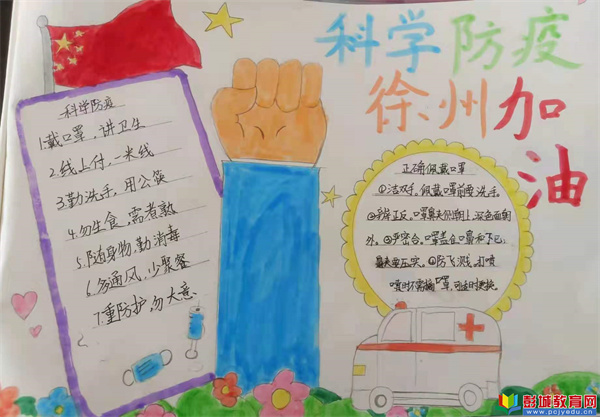 科学防疫
徐州加油
科学防疫
1.戴口罩,讲卫生
2.线上付,一米线
3.勤洗手,用公筷
4.勿生食,需煮熟
5.随身物,勤消毒
6.多通风,少聚餐
7.重防护,勿大意
正确佩戴口罩
①洁双手。佩戴口罩前要洗手。
②辨正反。口罩鼻夹侧朝上,深色面朝
外。③严密合。口罩盖合口鼻和下巴,
鼻夹要压实。④防飞溅。打喷
嚏时不需摘口罩,可适时更换。
彭城教育网
www.pcjyedu.cn